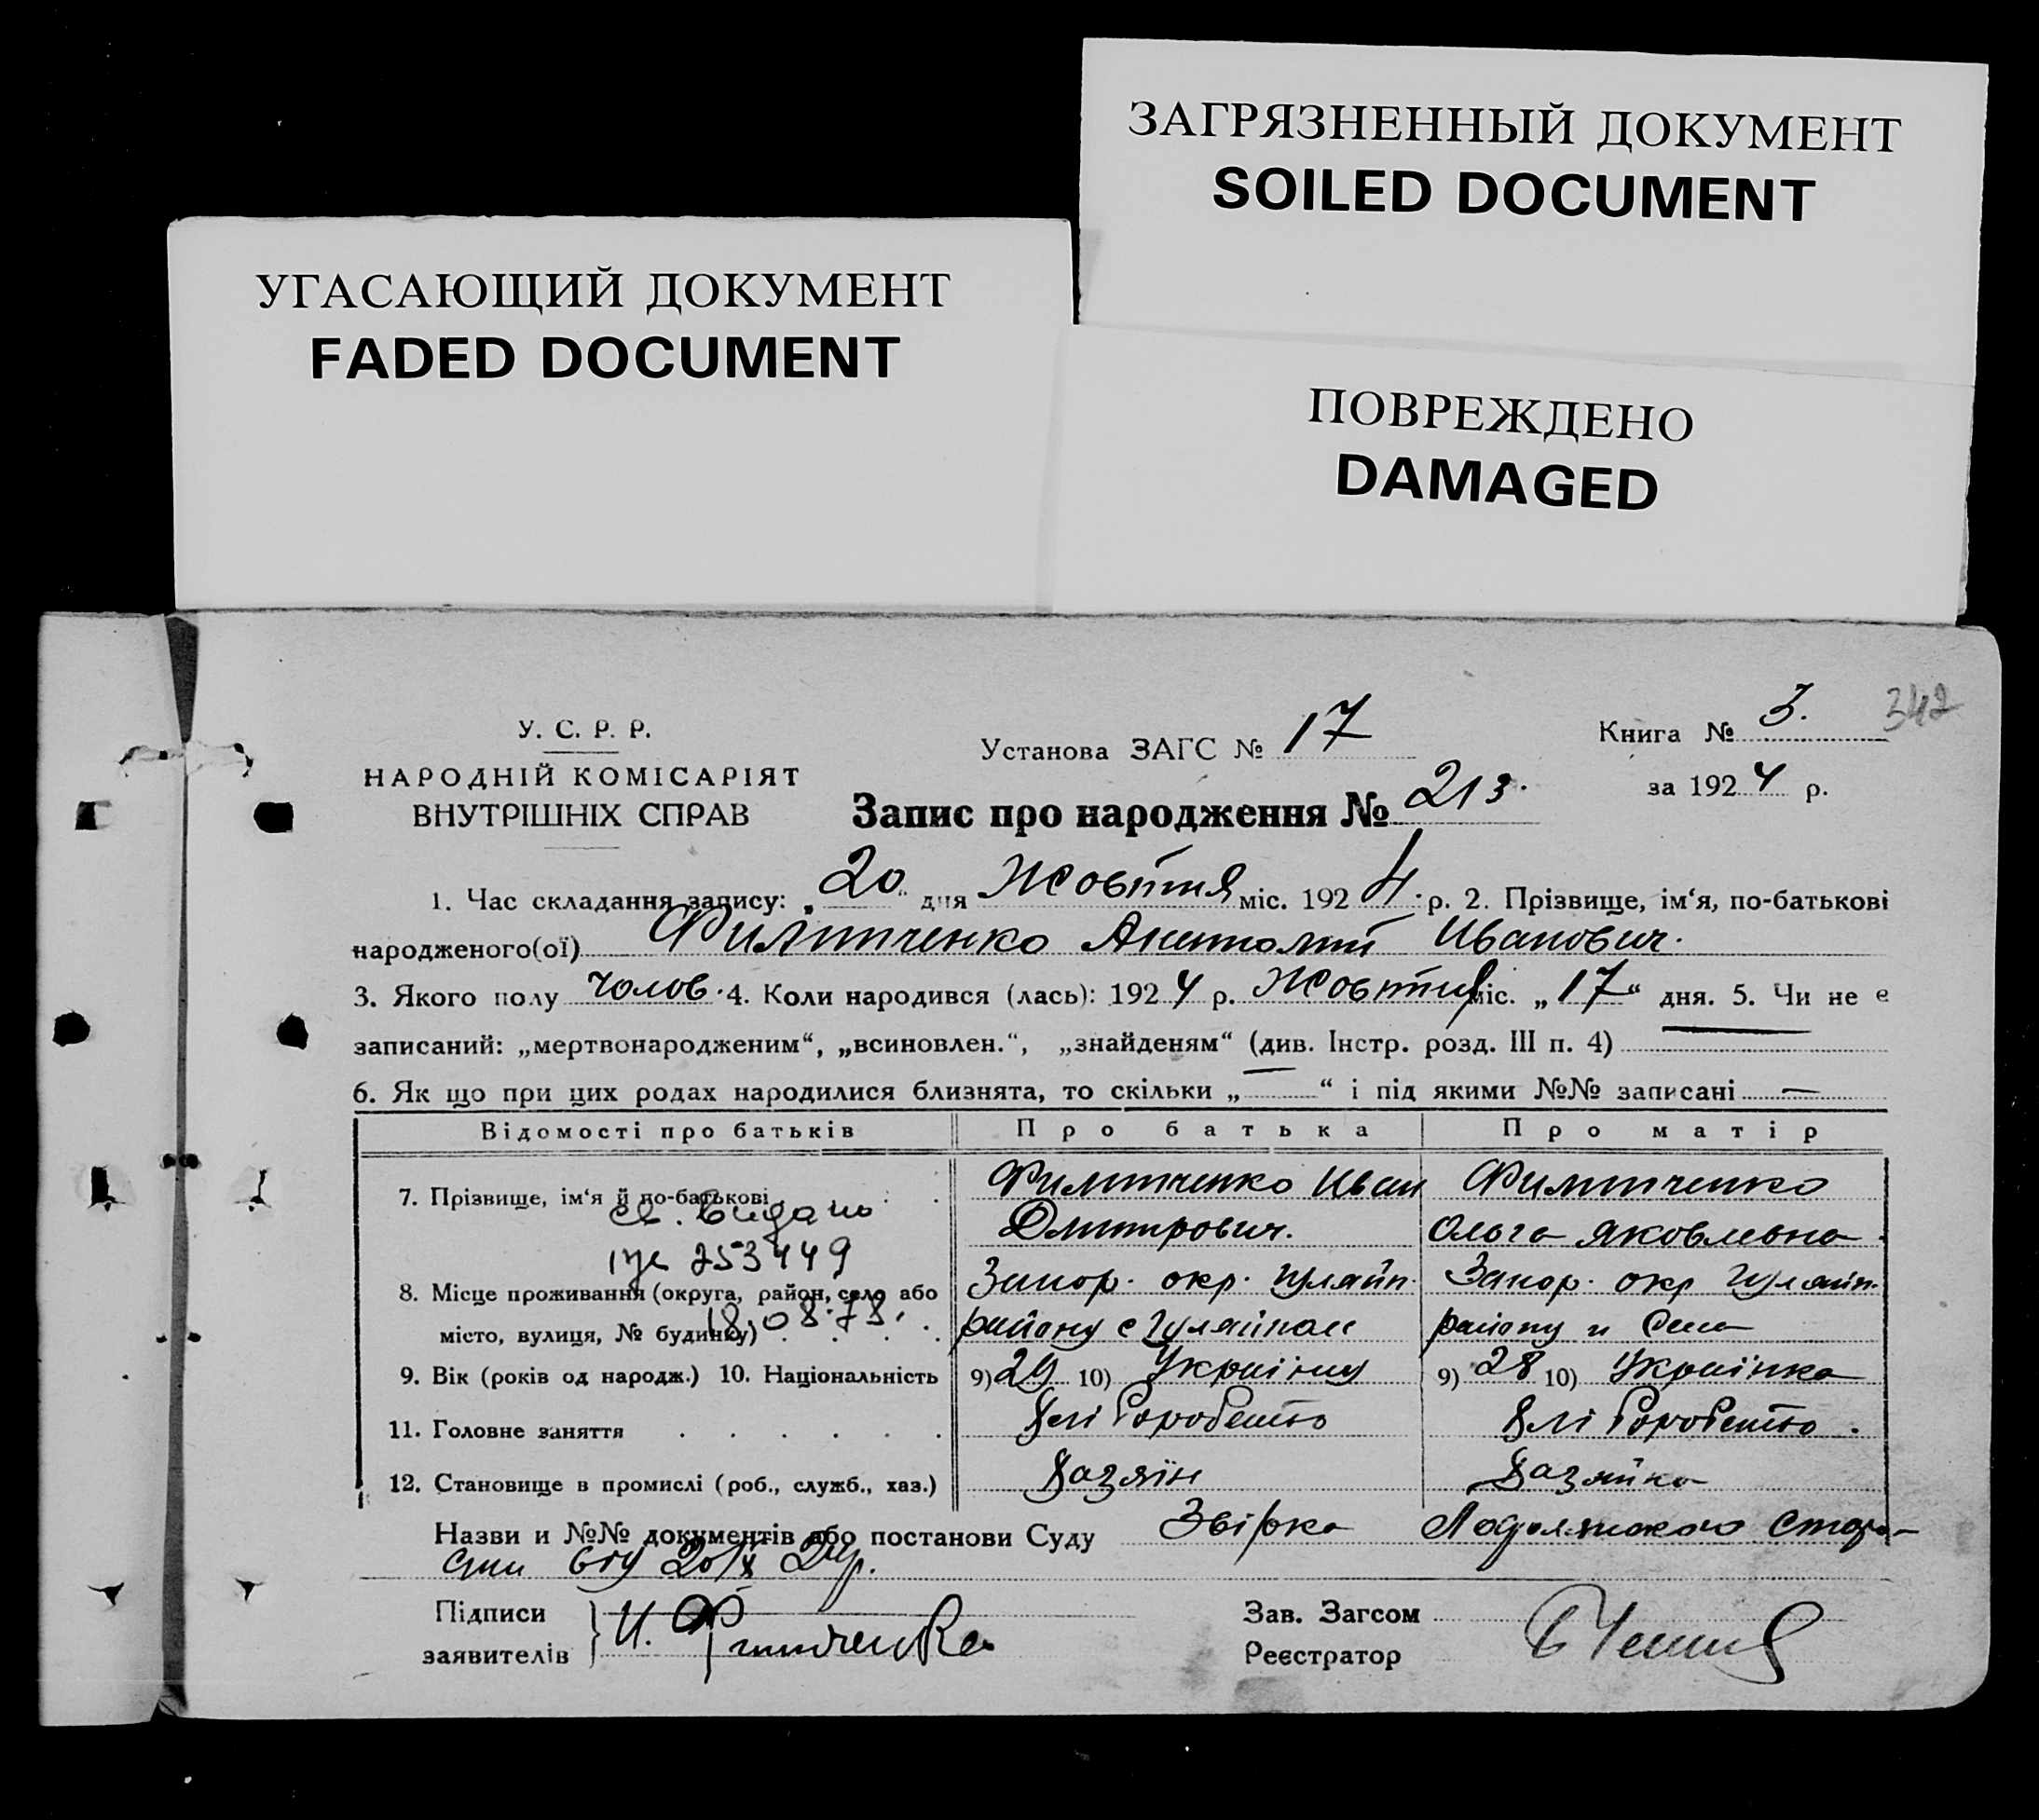 ЗАГРЯЗНЕННЫЙ ДОКУМЕНТ
SOILED DOCUMENT
УГАСАЮЩИЙ ДОКУМЕНТ
FADED DOCUMENT
ПОВРЕЖДЕНО
DAMAGED
У. С. Р. Р.
НАРОДНІЙ КОМІСАРІЯТ
ВНУТРІШНІХ СПРАВ
Установа ЗАГС № 17
Книга № 3. 342
за 1924 р.
Запис про народження № 213.
1. Час складання запису: „20" дня Жовтня міс. 1924 р. 2. Прізвище, ім'я, по-батькові
народженого(ої) Филипченко Анатолий Иванович.
3. Якого полу чолов. 4. Коли народився (лась): 1924 р. Жовтня міс. „17" дня. 5. Чи не є
записаний: „мертвонародженим", „всиновлен.", „знайденям" (див. Інстр. розд. III п. 4) —
6. Як що при цих родах народилися близнята, то скільки „—" і під якими №№ записані —
Відомості про батьків Про батька Про матір
7. Прізвище, ім'я й по-батькові Филипченко Иван Филипченко
св. видано Дмитрович. Ольга Яковлевна.
253449
8. Місце проживання (округа, район, село або Запор. окр. Гуляйп. Запор. окр Гуляйп.
18.08.78.
місто, вулиця, № будинку) району с Гуляйполе району
9. Вік (років од народж.) 10. Національність 9) 29 10) Україн 9) 28 10) Українка
11. Головне заняття Хліборобство Хліборобство.
12. Становище в промислі (роб., служб., хаз.) Хазяїн Хазяйка
Назви и №№ документів або постанови Суду
20/X 24р.
Підписи
заявителів И. Филипченко
Зав. Загсом
Реєстратор